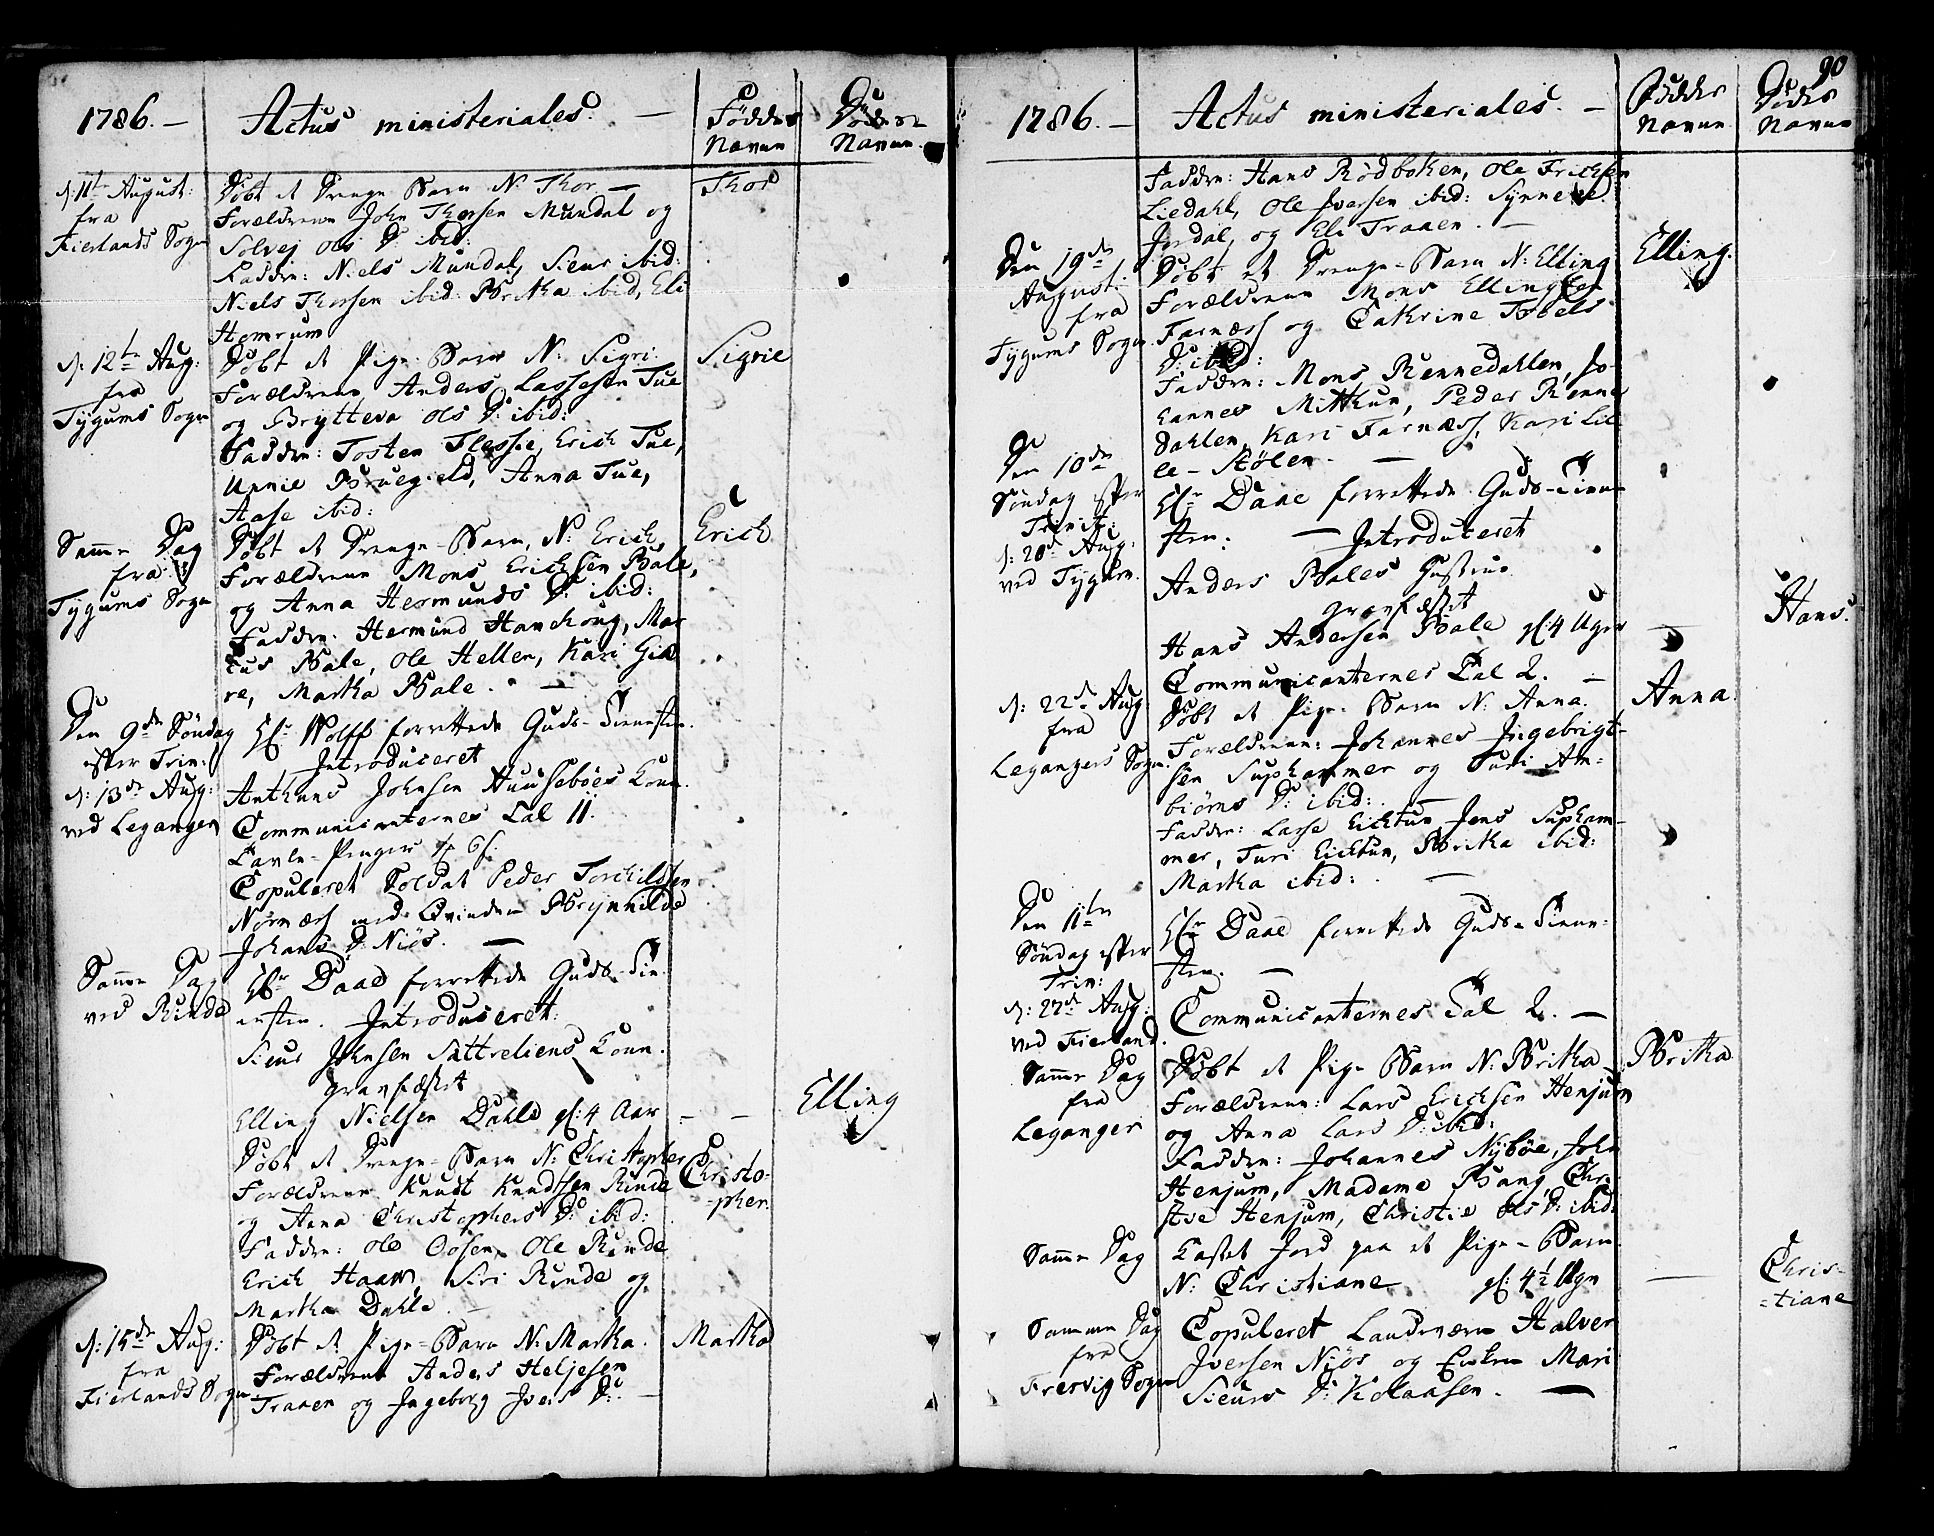 1786. — Actus ministeriales. — Føddes Navne Dødes Navne
d: 11te August:
fra
Fierlands Sogn
Døbt et Drenge-Barn N: Thor —
Forældrene John Thorsen Mundal og
Solvej Ols D: ibid:
Faddre: Niels Mundal, Siur ibid:
Niels Thorsen ibid: Britha ibid, Eli
Homrum
Thor
d: 12te Aug:
fra
Tygums Sogn
Døbt et Pige-Barn N: Sigri:
Forældrene Anders Lassesen Tue
og Brytteva Ols D: ibid:
Faddre: Tosten Flesse, Erich Tue,
Unnie Bruegield, Anna Tue,
Aase ibid:
Sigrie
Samme Dag
fra
Tygums Sogn
Døbt et Drenge-Barn, N: Erich,
Forældrene Mons Erichsen Bale,
og Anna Hermunds D: ibid:
Faddre: Hermund Hamchoug, Mar
cus Bale, Ole Hellen, Kari Giæ
re, Martha Bale. —
Erich
Den 9de Søndag
efter Trin:
d: 13de Aug:
ved Leganger
Hr: Wolff forrettede Guds-Tienesten.
Introduceret
Anthuns Johnsen Huusebøes Kone.
Communicanternes Tal 11.
Tavle-Penger
Copuleret Soldat Peder Torchildsen
Nornæss med Qvinden Brynhilde
Johans D: Niøs. —
Samme Dag
ved Rinde
Hr Daae forrettede Guds-Tie-
nesten. Introduceret:
Siurs Johnsen Sættreliens Kone.
Gravfæstet
Elling Nielsen Dahle gl: 4 Aar — —
Elling
Døbt et Drenge-Barn N: Christopher
Forældrene Knudt Knudtsen Rinde
og Anna Christophers D: ibid:
Faddre: Ole Oosen, Ole Rinde
Erich Haaw, Siri Rinde og
Martha Dahle. —
Christo-
-pher:
d: 15de Aug:
fra
Fierlands Sogn
Døbt et Pige-Barn N: Martha.
Forældrene Anders Heljesen
Traaen og Ingeborg Ivers D: —
Martha
90
1786. — Actus ministeriales. — Føddes Navne Dødes Navne
Faddre: Hans Rødboken, Ole Frichsen
Liedahl, Ole Iversen ibid: Synneve
Jordal, og Eli Traaen. —
Den 19de
August:
fra
Tygums Sogn.
Døbt et Drenge-Barn N: Elling
Forældrene Mons Ellingsen
Farnæss og Cathrine Tobels
D: ibid:
Faddre: Mons Rennedahlen, Jo-
hannes Mitthun, Peder Renne
Dahlen, Kari Farnæss, Kari Lil
le-Stølen. —
Elling.
Den 10de
Søndag efter
Trinit:
d: 20de Aug:
ved Tygum.
Hr Daae forrettede Guds-Tiene-
sten: — Introduceret
Anders Bales Hustrue
Gravfæstet
Hans Andersen Bale gl: 4 Uger —
Communicanternes Tal 2. —
Hans.
d: 22de Aug
fra
Legangers Sogn.
Døbt et Pige-Barn N: Anna.
Forældrene: Johannes Ingebrigt-
sen Suphammer og Turi Am-
biørns D: ibid: —
Faddre: Lasse Eichtun, Jens Supham-
mer, Turi Eichtun, Britha ibid:
Martha ibid: —
Anna.
Den 11te
Søndag efter
Trin:
d: 27de Aug:
ved Fierland.
Hr Daae forrettede Guds-Tiene-
sten. —
Communicanternes Tal 2. —
Samme Dag
fra
Leganger
Døbt et Pige-Barn N: Britha
Forældrene: Lars Erichsen Henjum
og Anna Lars D: ibid:
Faddre: Johannes Nybøe, John
Henjum, Madame Bang, Chri-
stve Henjum, Christie Ols D: ibid:
Britha
Samme Dag
Kastet Jord paa et Pige-Barn
N: Christiane gl: 4½ Uge —
Chris-
-tiane
Samme Dag
fra
Fresvig Sogn
Copuleret Landværn Halver
Iversen Niøs og Enken Mari
Siurs D: Kolaasen. —